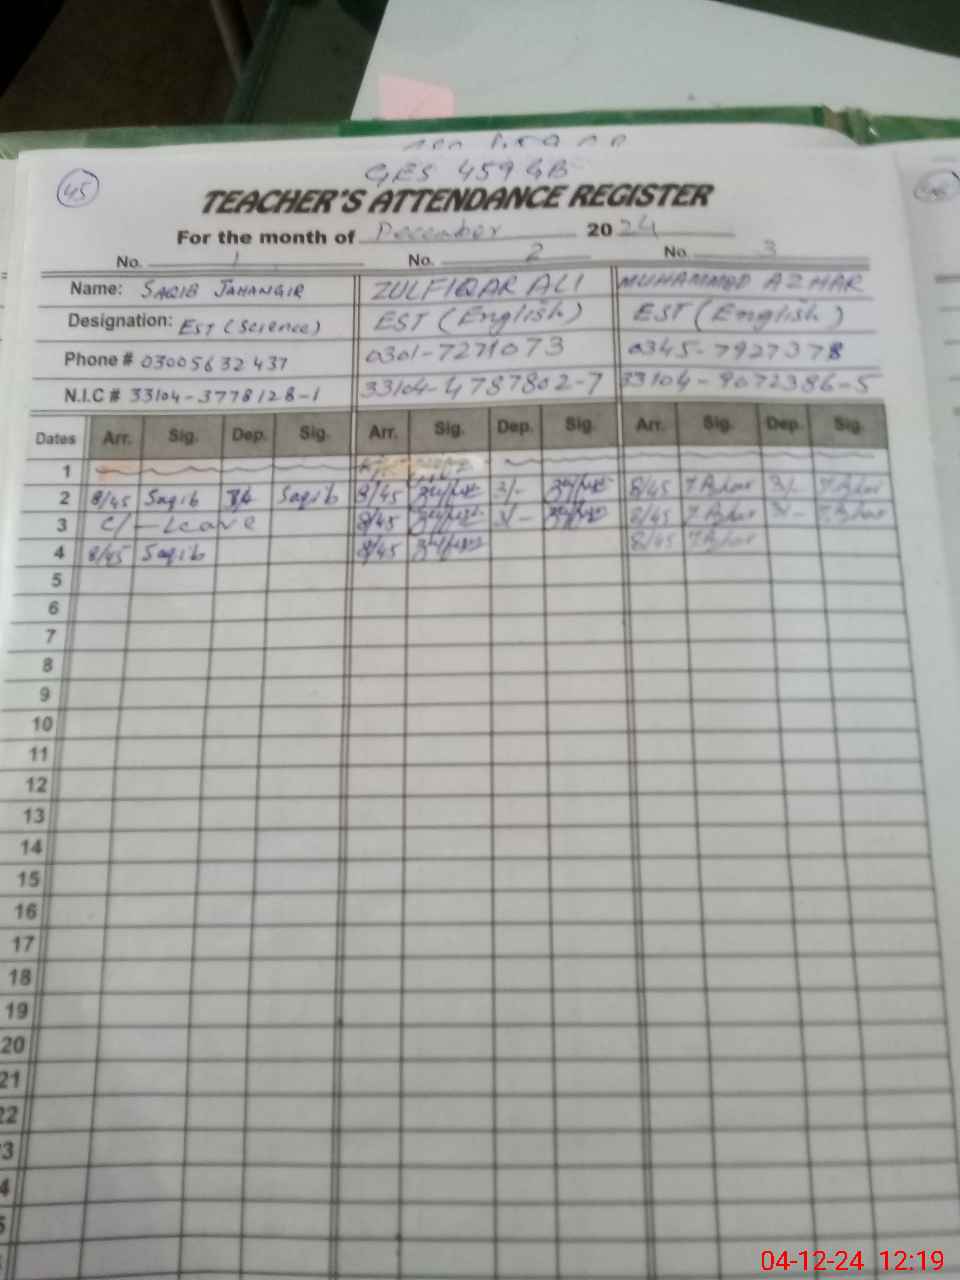 GES 459 GB
45
TEACHER'S ATTENDANCE REGISTER
For the month of December 2024
No. 1 No. 2 No. 3
Name: SAQIB JAHANGIR ZULFIQAR ALI MUHAMMAD AZHAR
Designation: EST (Science) EST (English) EST (English)
Phone # 03005632437 0301-7271073 0345-7927378
N.I.C # 33104-3778128-1 33104-4787802-7 33104-9072386-5
Dates Arr. Sig. Dep. Sig. Arr. Sig. Dep. Sig. Arr. Sig. Dep. Sig.
1
2 8/45 Saqib Saqib 8/45 3/- 8/45 Azhar 3/- Azhar
3 C/-Leave 8/45 3/- 8/45 Azhar 3/- Azhar
4 8/45 Saqib 8/45 8/45 Azhar
5
6
7
8
9
10
11
12
13
14
15
16
17
18
19
20
21
22
3
4
5
04-12-24 12:19